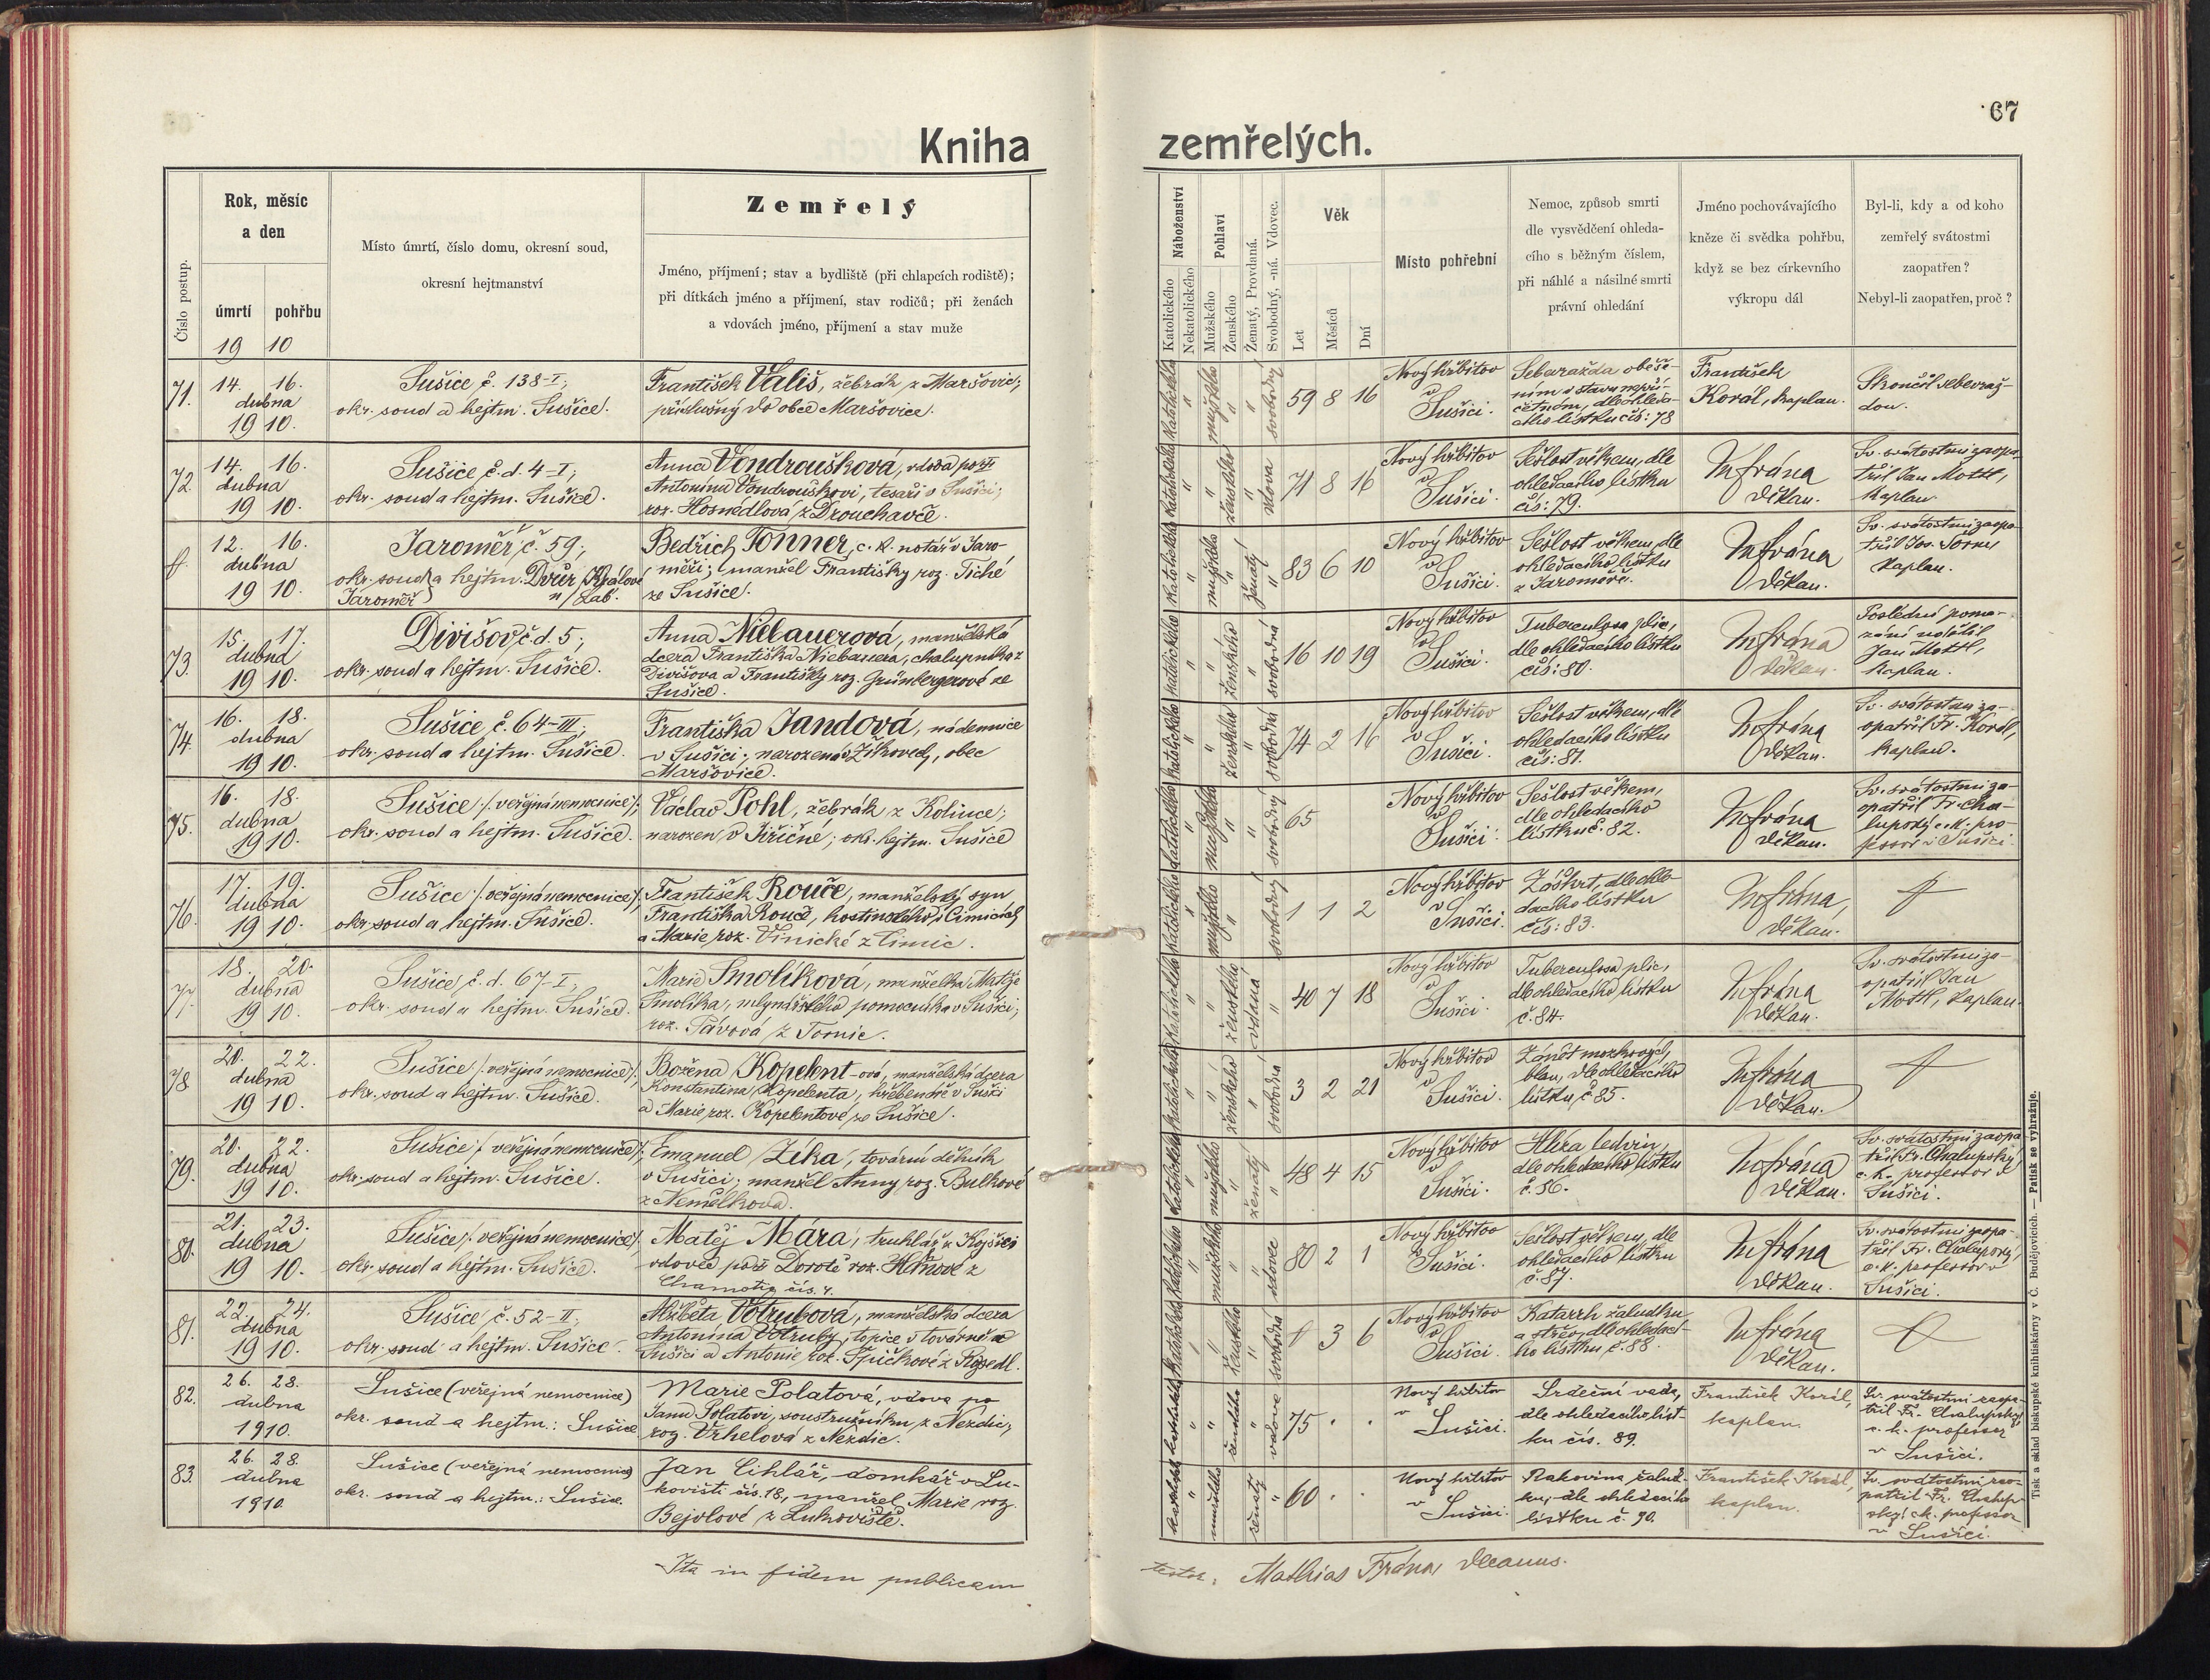 67
Kniha zemřelých.
Číslo postup.
Rok, měsíc
a den
úmrtí
pohřbu
19 10
Místo úmrtí, číslo domu, okresní soud,
okresní hejtmanství
Zemřelý
Jméno, příjmení; stav a bydliště (při chlapcích rodiště);
při dítkách jméno a příjmení, stav rodičů; při ženách
a vdovách jméno, příjmení a stav muže
Náboženství
Katolického
Nekatolického
Pohlaví
Mužského
Ženského
Ženatý, Provdaná.
Svobodný, -ná. Vdovec.
Věk
Let
Měsíců
Dní
Místo pohřební
Nemoc, způsob smrti
dle vysvědčení ohleda-
cího s běžným číslem,
při náhlé a násilné smrti
právní ohledání
Jméno pochovávajícího
kněze či svědka pohřbu,
když se bez církevního
výkropu dál
Byl-li, kdy a od koho
zemřelý svátostmi
zaopatřen?
Nebyl-li zaopatřen, proč?
71. 14. 16.
dubna
19 10.
Sušice č. 138-I;
okr. soud a hejtm. Sušice.
František Vališ, žebrák z Maršovic;
příslušný do obce Maršovice.
katolického
mužského
svobodný
59 8 16
Nový hřbitov
v
Sušici.
Sebevražda oběše-
ním v stavu nepří-
četném, dle ohleda-
cího lístku čís: 78
František
Korál, kaplan.
Skončil sebevraž-
dou.
72. 14. 16.
dubna
19 10.
Sušice č. d. 4-I;
okr. soud a hejtm. Sušice.
Anna Vondroušková, vdova po
Antonínu Vondrouškovi, tesaři v Sušici;
roz. Hosnedlova z Drouhavče.
katolického
ženského
vdova
71 8 16
Nový hřbitov
v
Sušici.
Sešlost věkem, dle
ohledacího lístku
čís: 79.
M Frána
děkan.
Sv. svátostmi zaopa
třil Jan Mottl,
kaplan
12. 16.
dubna
19 10.
Jaroměř, č. 59;
okr. soud a hejtm. Dvůr Králové
Jaroměř n/Lab.
Bedřich Tonner, c. k. notář v Jaro-
měři; manžel Františky roz. Tiché
ze Sušice.
katolického
mužského
ženatý
83 6 10
Nový hřbitov
v
Sušici.
Sešlost věkem, dle
ohledacího lístku
z Jaroměře.
M Frána
děkan.
Sv. svátostmi zaopa
třil Jos.
kaplan.
73. 15. 17.
dubna
19 10.
Divišov č. d. 5;
okr. soud a hejtm. Sušice.
Anna Niebauerová, manželská
dcera Františka Niebauera, chalupníka z
Divišova a Františky roz. Grünbergerové ze
Sušice.
katolického
ženského
svobodná
16 10 19
Nový hřbitov
v
Sušici.
Tuberculosa plic,
dle ohledacího lístku
čís: 80.
M Frána
děkan.
Poslední poma-
zání udělil
Jan Mottl,
kaplan.
74. 16. 18.
dubna
19 10.
Sušice č. 64-III;
okr. soud a hejtm. Sušice.
Františka Jandová, nádennice
v Sušici; narozená v Žikovech, obec
Maršovice.
katolického
ženského
svobodná
74 2 16
Nový hřbitov
v
Sušici.
Sešlost věkem, dle
ohledacího lístku
čís: 81.
M Frána
děkan.
Sv. svátostmi za-
opatřil Fr. Korál,
kaplan.
75. 16. 18.
dubna
19 10.
Sušice /: veřejná nemocnice:/;
okr. soud a hejtm. Sušice.
Václav Pohl, žebrák z Kolince;
narozen v Jiřičné; okr. hejtm. Sušice
katolického
mužského
svobodný
65
Nový hřbitov
v
Sušici.
Sešlost věkem,
dle ohledacího
lístku č. 82.
M Frána
děkan.
Sv. svátostmi za-
opatřil Fr. Cha-
lupský c. k. pro-
fessor v Sušici.
76. 17. 19.
dubna
19 10.
Sušice /: veřejná nemocnice:/;
okr. soud a hejtm. Sušice.
František Rouče, manželský syn
Františka Rouče, hostinského v Čimicích
a Marie roz. Vinické z Čimic.
katolického
mužského
svobodný
1 1 2
Nový hřbitov
v
Sušici.
Záškrt, dle ohle-
dacího lístku
čís: 83.
M Frána,
děkan.
77. 18. 20.
dubna
19 10.
Sušice, č. d. 67-I;
okr. soud a hejtm. Sušice.
Marie Smolíková, manželka Matěje
Smolíka, mlynářského pomocníka v Sušici;
roz. Pávova z
katolického
ženského
vdaná
40 7 18
Nový hřbitov
v
Sušici.
Tuberculosa plic,
dle ohledacího lístku
č. 84.
M Frána
děkan.
Sv. svátostmi za-
opatřil Jan
Mottl, kaplan.
78 20. 22.
dubna
19 10.
Sušice /: veřejná nemocnice:/;
okr. soud a hejtm. Sušice.
Božena Kopelent-ová, manželská dcera
Konstantina Kopelenta, hřebenáře v Sušici
a Marie roz. Kopelentové ze Sušice.
katolického
ženského
svobodná
3 2 21
Nový hřbitov
v
Sušici.
Zánět mozkových
blan, dle ohledacího
lístku č. 85.
M Frána
děkan.
79. 20. 22.
dubna
19 10.
Sušice /: veřejná nemocnice:/;
okr. soud a hejtm. Sušice.
Emanuel Zíka, tovární dělník
v Sušici; manžel Anny roz. Bulkové
z Nemělkova.
katolického
mužského
ženatý
48 4 15
Nový hřbitov
v
Sušici.
ledvin,
dle ohledacího lístku
č. 86.
M Frána
děkan.
Sv. svátostmi zaopa
třil Fr. Chalupský
c. k. professor v
Sušici.
80. 21. 23.
dubna
19 10.
Sušice /: veřejná nemocnice:/;
okr. soud a hejtm. Sušice.
Matěj Mára, truhlář z
vdovec po Dorotě roz.
Chamotic čís. 4.
katolického
mužského
vdovec
80 2 1
Nový hřbitov
v
Sušici.
Sešlost věkem, dle
ohledacího lístku
č. 87.
M Frána
děkan.
Sv. svátostmi zaopa-
třil Fr. Chalupský,
c. k. professor v
Sušici.
81. 22. 24.
dubna
19 10.
Sušice, č. 52-II;
okr. soud a hejtm. Sušice.
Alžběta Votrubová, manželská dcera
Antonína Votruby, topiče v továrně v
Sušici a Antonie roz. Špičkové z Rozsedl.
katolického
ženského
svobodná
3 6
Nový hřbitov
v
Sušici.
Katarrh žaludku
a střev, dle ohledací-
ho lístku č. 88.
M Frána
děkan.
82. 26. 28.
dubna
1910.
Sušice (veřejná nemocnice)
okr. soud a hejtm.: Sušice
Marie Polatová, vdova po
Janu Polatovi, soustružníku z Nezdic,
roz. Vrhelová z Nezdic.
katolického
ženského
vdova
75 . .
Nový hřbitov
v
Sušici.
Srdeční vada,
dle ohledacího líst-
ku čís. 89.
František Korál,
kaplan.
Sv. svátostmi zaopa-
třil Fr. Chalupský
c. k. professor
v Sušici.
83. 26. 28.
dubna
1910.
Sušice (veřejná nemocnice)
okr. soud a hejtm.: Sušice.
Jan Cihlář, domkář v Lu-
kovišti čís. 18, manžel Marie roz.
Bejvlové z Lukoviště.
katolického
mužského
ženatý
60 . .
Nový hřbitov
v
Sušici.
Rakovina žalud-
ku, dle ohledacího
lístku č. 90.
František Korál,
kaplan.
Sv. svátostmi zao-
patřil Fr. Chalup-
ský, c. k. professor
v Sušici.
Ita in fidem publicam
testor: Mathias Frána, decanus.
Tisk a sklad biskupské knihtiskárny v Č. Budějovicích. — Patisk se vyhražuje.